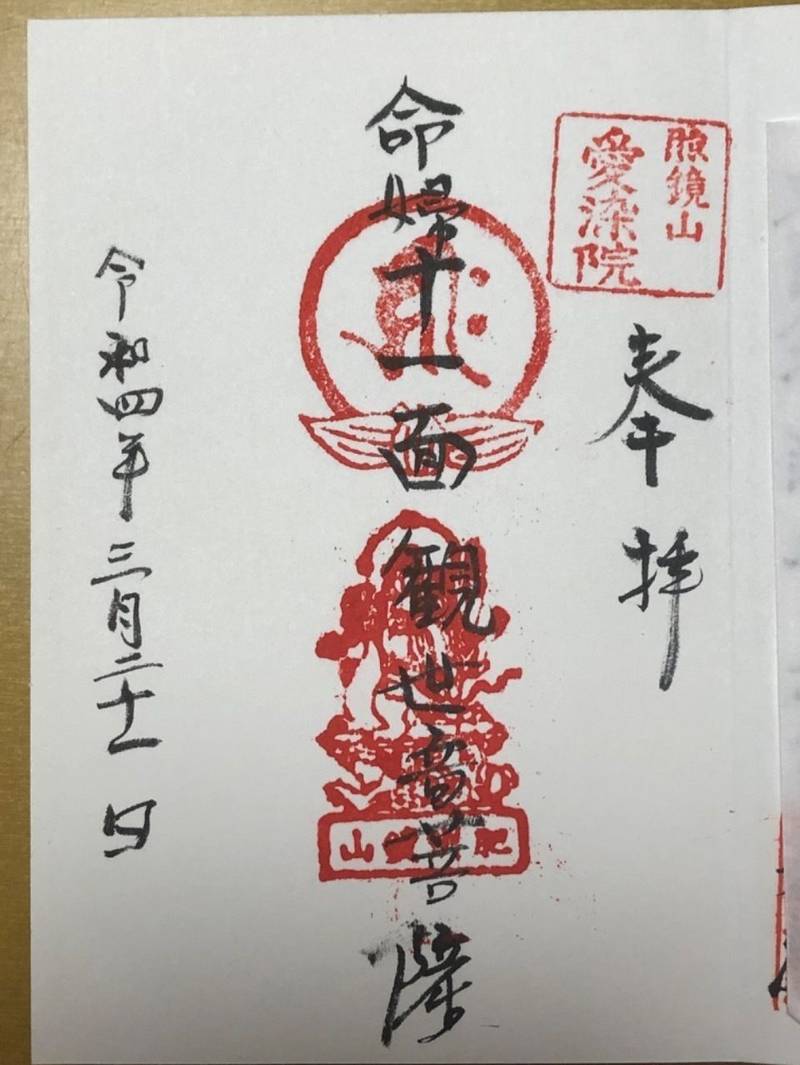 照鏡山
愛染院
奉拝
命婦十一面観世音菩薩
令和四年三月二十一日
山